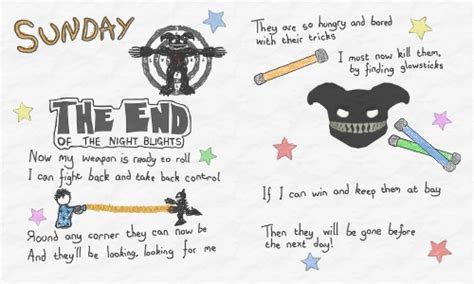 SUNDAY
THE END
OF THE NIGHT BLIGHTS
Now my weapon is ready to roll
I can fight back and take back control
Round any corner they can now be
And they'll be looking, looking for me
They are so hungry and bored
with their tricks
I must now kill them,
by finding glowsticks
If I can win and keep them at bay
Then they will be gone before
the next day!